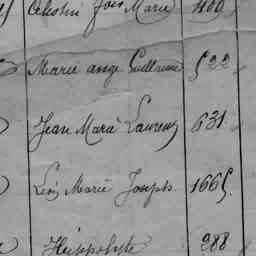 Célestin Jean Marie 480
Marie ange Guillaume 522
Jean Marie Laurent 631
Léon Marie Joseph 1665
Hyppolyte 288